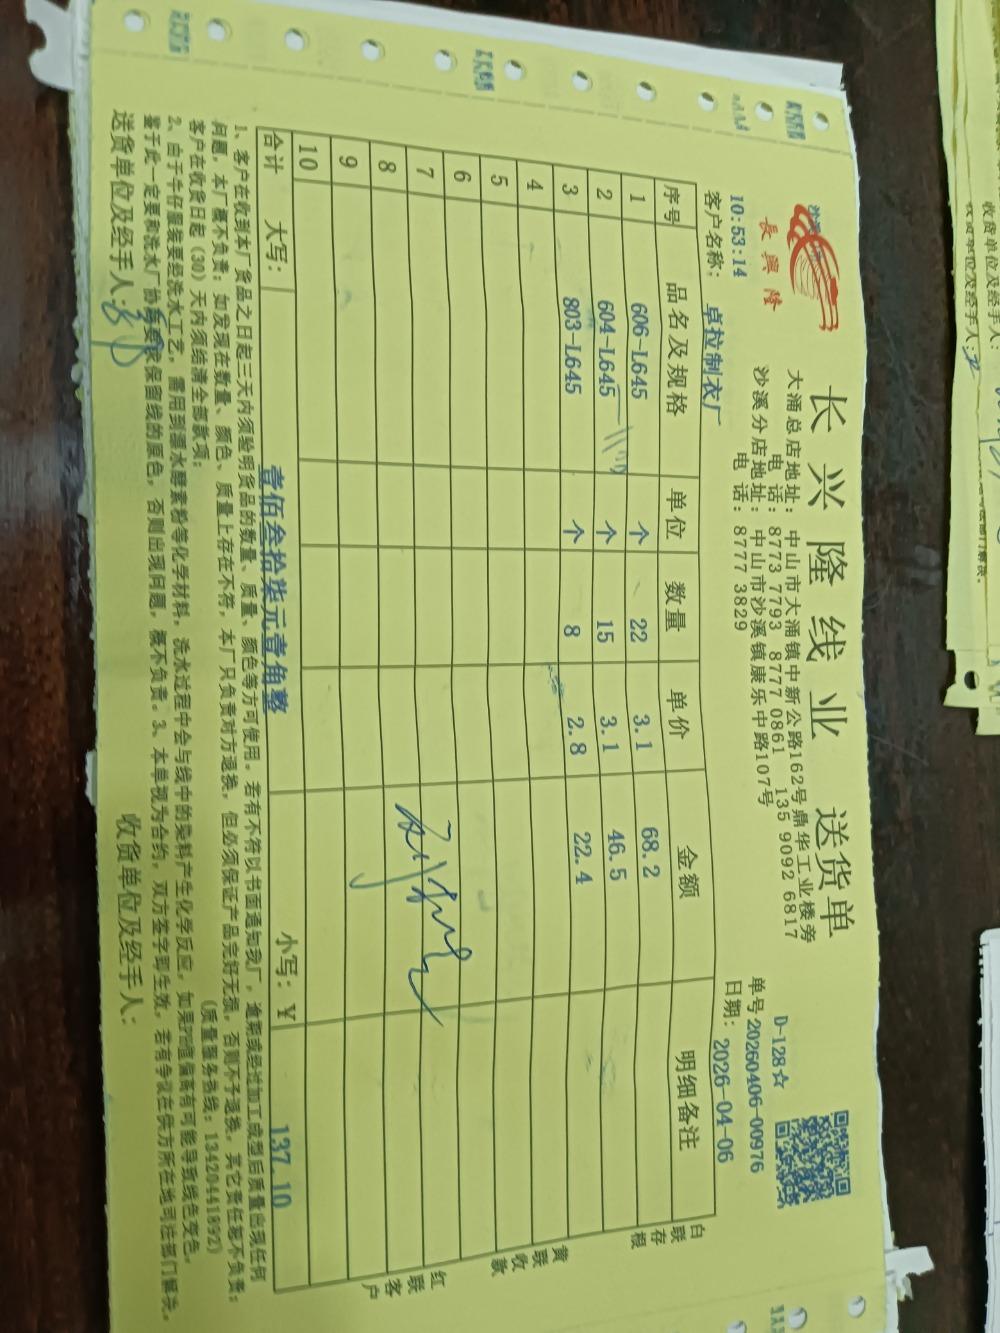 长兴隆线业 送货单
長興隆
大涌总店地址：中山市大涌镇中新公路162号鼎华工业楼旁
电 话：8773 7793 8777 0861 135 9092 6817
沙溪分店地址：中山市沙溪镇康乐中路107号
电 话：8777 3829
D-128☆
单号 20260406-00976
10:53:14
客户名称：卓拉制衣厂
日期：2026-04-06
序号 品名及规格 单位 数量 单价 金额 明细备注
1 606-L645 个 22 3.1 68.2
2 604-L645 个 15 3.1 46.5
3 803-L645 个 8 2.8 22.4
4
5
6
7
8
9
10
合计 大写：壹佰叁拾柒元壹角整 小写：¥ 137.10
白联存根
黄联收款
红联客户
1、客户在收到本厂货品之日起三天内须验明货品的数量、质量、颜色等方可使用，若有不符以书面通知我厂，逾期或经过加工成型后质量出现任何
问题，本厂概不负责；如发现在数量、颜色、质量上存在不符，本厂只负责对方退换，但必须保证产品完好无损，否则不予退换，其它责任概不负责；
客户在收货日起（30）天内须给清全部款项；
（质量服务热线：13420441892）
2、由于牛仔服装要经洗水工艺，需用到漂水酵素粉等化学材料，洗水过程中会与线中的染料产生化学反应，如果PH值偏高有可能导致线色变色，
鉴于此一定要和洗水厂协商要求保留线的原色，否则出现问题，概不负责。3、本单视为合约，双方签字即生效，若有争议在供方所在地司法部门解决。
送货单位及经手人：
收货单位及经手人：
收货单位及经手人：